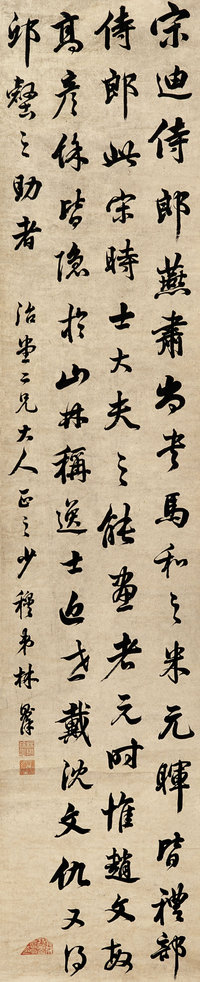 宋迪侍郎燕肅尚書馬和之米元暉皆禮部
侍郎此宋時士大夫之能畫者元時惟趙文敏
高彥餘皆隱於山林稱逸士近世戴沈文仇又得
邱壑之助者 治堂二兄大人正之 少穆弟林則徐